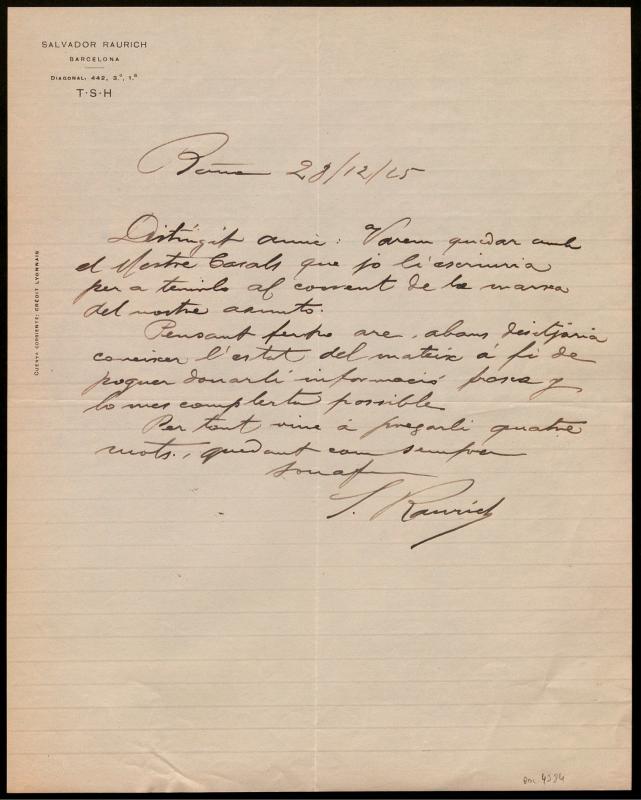 SALVADOR RAURICH
BARCELONA
DIAGONAL: 442, 3.º, 1.ª
T·S·H
CUENTA CORRIENTE: CRÉDIT LYONNAIS
Bna 23/12/25
Distingit amic: Varem quedar amb
el Mestre Casals que jo li escriuria
per a tenirlo al corrent de la marxa
del nostre asunto.
Pensant ferho are, abans desitjaria
coneixer l'estat del mateix á fi de
poguer donarli informació fresca y
lo mes complerta possible
Per tant vinc á pregarli quatre
mots., quedant com sempre
son af
S. Raurich
Doc. 4584